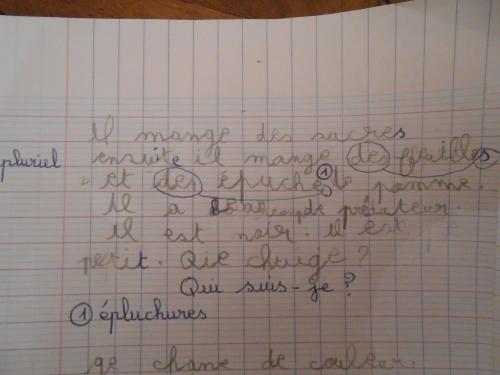 Il mange des sucres
pluriel ensuite il mange des ffeuilles
et des épuche de pomme.
Il a beaucoup de prédateur.
Il est noir. Il est
petit. Qie chuige ?
Qui suis-je ?
① épluchures
ge chane de couleur.